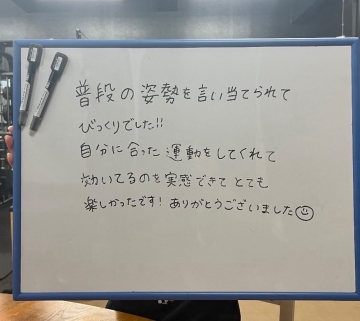 普段の姿勢を言い当てられて
びっくりでした!!
自分に合った運動をしてくれて
効いてるのを実感できてとても
楽しかったです！ありがとうございました☺